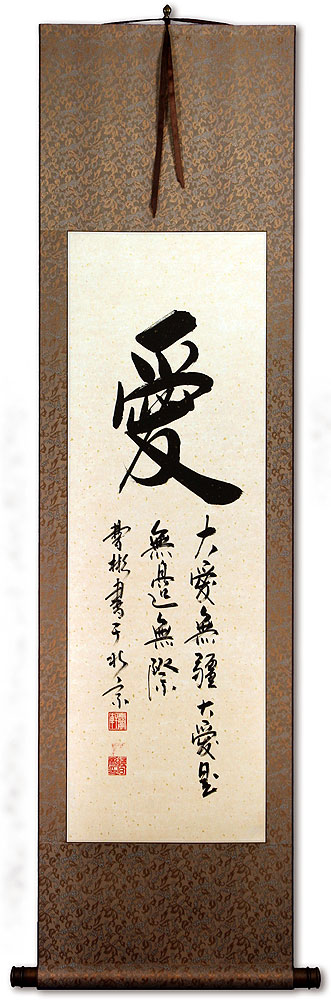 愛
大愛無疆大愛是
無邊無際
費彬書于北京